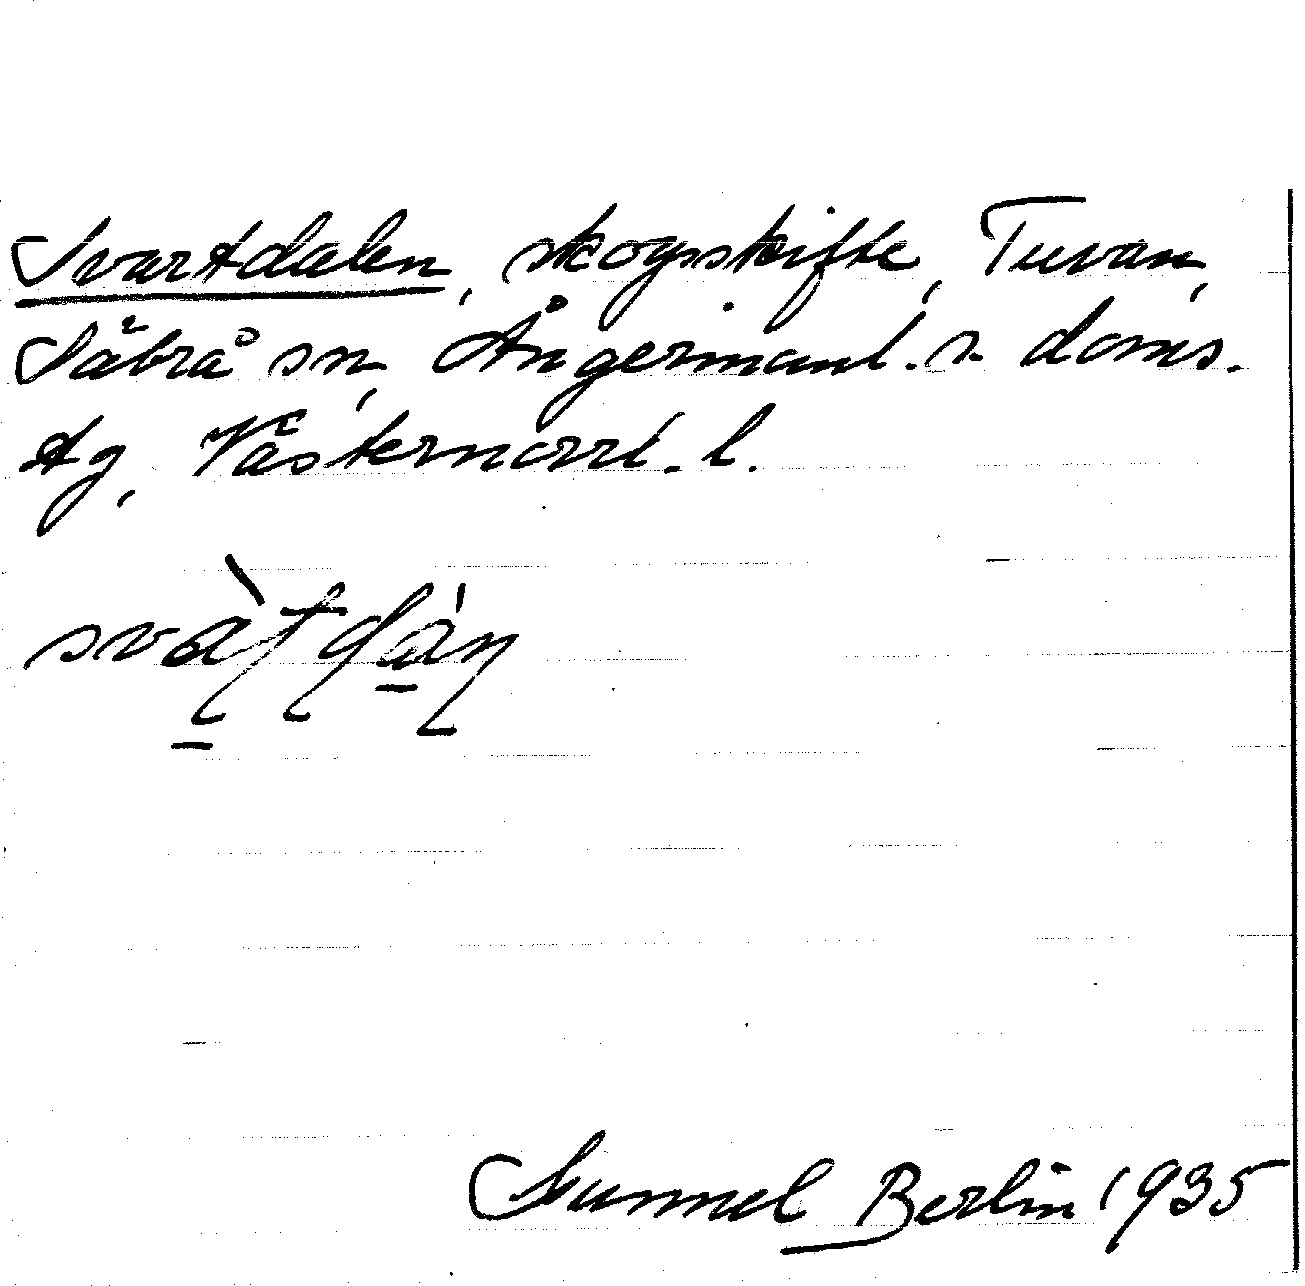 Svartdalen, skogsskifte, Tuvan,
Säbrå sn, Ångermanl. s. doms.
tg, Västernorrl. l.
svàʈɖáɳ
Gunnel Berlin 1935